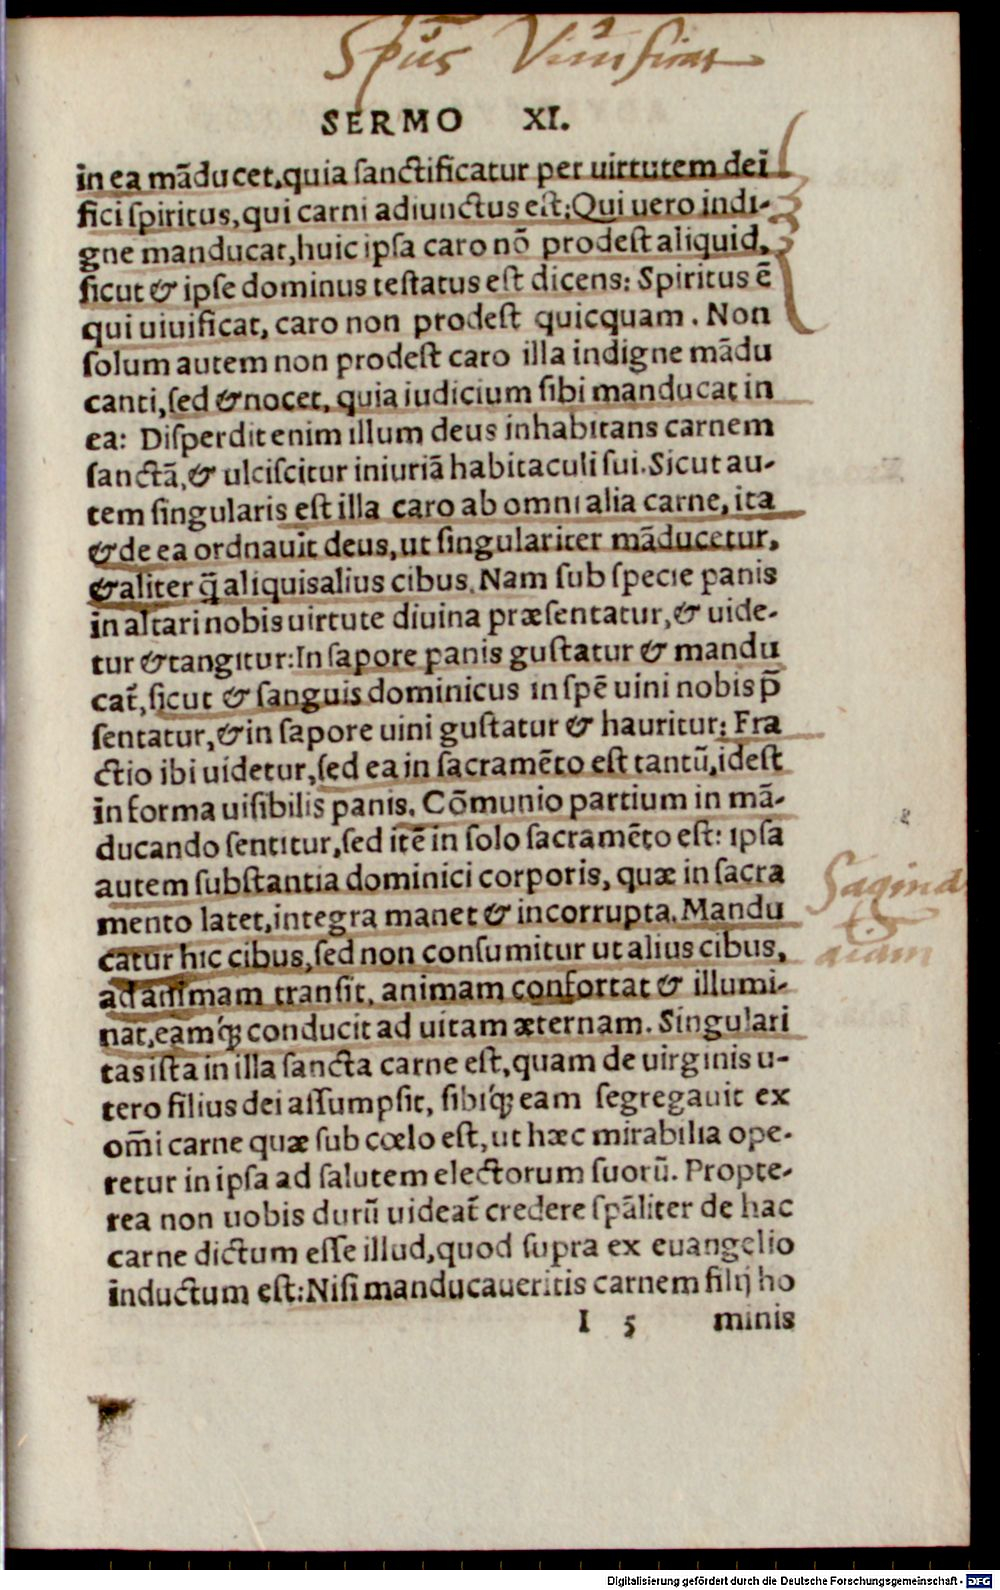 Sp̃us Viuificat
SERMO XI.
in ea mãducet,quia ſanctificatur per uirtutem dei
fici ſpiritus,qui carni adiunctus eſt:Qui uero indi-
gne manducat,huic ipſa caro nõ prodeſt aliquid,
ſicut & ipſe dominus teſtatus eſt dicens: Spiritus ẽ
qui uiuificat, caro non prodeſt quicquam. Non
ſolum autem non prodeſt caro illa indigne mãdu
canti,ſed & nocet, quia iudicium ſibi manducat in
ea: Diſperdit enim illum deus inhabitans carnem
ſanctã,& ulciſcitur iniuriã habitaculi ſui.Sicut au-
tem ſingularis eſt illa caro ab omni alia carne, ita
& de ea ordnauit deus,ut ſingulariter mãducetur,
& aliter q̃ aliquis alius cibus. Nam ſub ſpecie panis
in altari nobis uirtute diuina præſentatur,& uide-
tur & tangitur:In ſapore panis guſtatur & mandu
cat̃,ſicut & ſanguis dominicus in ſpẽ uini nobis p̃
ſentatur,& in ſapore uini guſtatur & hauritur: Fra
ctio ibi uidetur,ſed ea in ſacramẽto eſt tantũ,ideſt
in forma uiſibilis panis. Cõmunio partium in mã-
ducando ſentitur,ſed itẽ in ſolo ſacramẽto eſt: ipſa
autem ſubſtantia dominici corporis, quæ in ſacra
mento latet,integra manet & incorrupta. Mandu
catur hic cibus,ſed non conſumitur ut alius cibus,
ad animam tranſit, animam confortat & illumi-
nat,eamq́ꝫ conducit ad uitam æternam. Singulari
tas iſta in illa ſancta carne eſt,quam de uirginis u-
tero filius dei aſſumpſit, ſibiq́ꝫ eam ſegregauit ex
om̃i carne quæ ſub cœlo eſt,ut hæc mirabilia ope-
retur in ipſa ad ſalutem electorum ſuorũ. Propte-
rea non uobis durũ uideat̃ credere ſpãliter de hac
carne dictum eſſe illud,quod ſupra ex euangelio
inductum eſt:Niſi manducaueritis carnem filij ho
I 5 minis
Digitalisierung gefördert durch die Deutsche Forschungsgemeinschaft - DFG